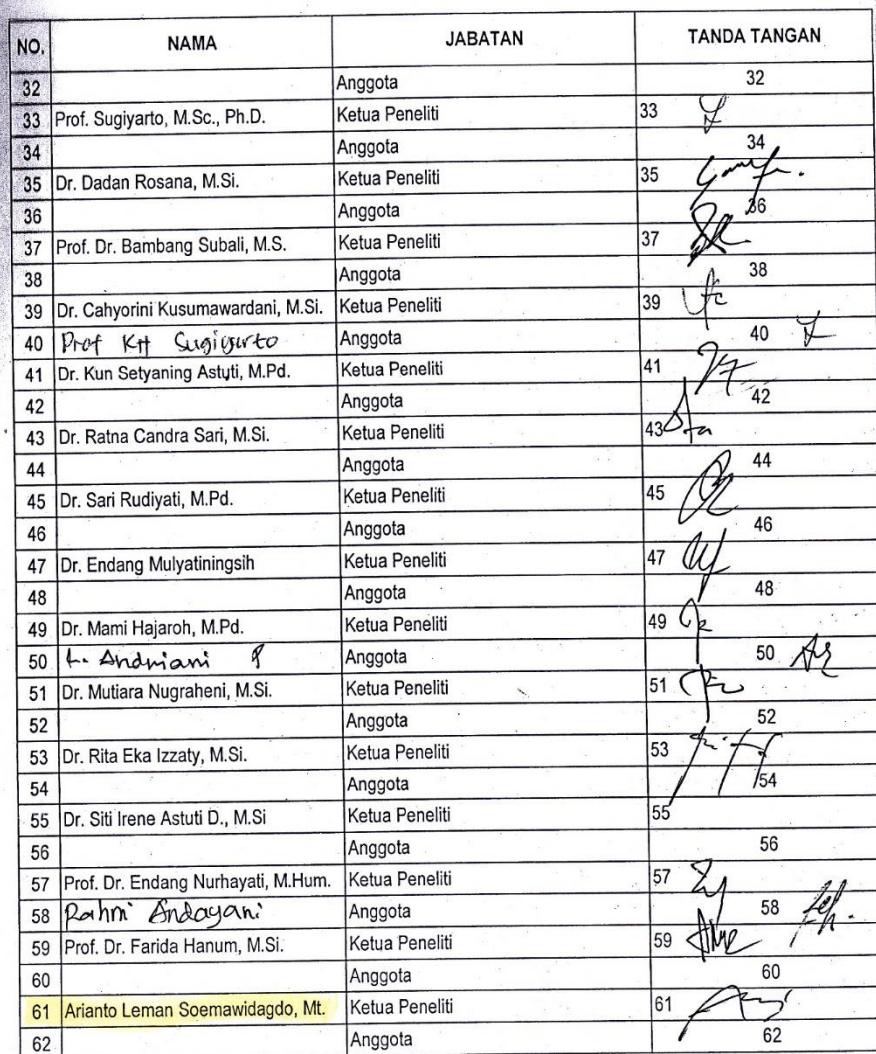 NO. NAMA JABATAN TANDA TANGAN
32 Anggota 32
33 Prof. Sugiyarto, M.Sc., Ph.D. Ketua Peneliti 33
34 Anggota 34
35 Dr. Dadan Rosana, M.Si. Ketua Peneliti 35
36 Anggota 36
37 Prof. Dr. Bambang Subali, M.S. Ketua Peneliti 37
38 Anggota 38
39 Dr. Cahyorini Kusumawardani, M.Si. Ketua Peneliti 39
40 Prof KH Sugiyarto Anggota 40
41 Dr. Kun Setyaning Astuti, M.Pd. Ketua Peneliti 41
42 Anggota 42
43 Dr. Ratna Candra Sari, M.Si. Ketua Peneliti 43
44 Anggota 44
45 Dr. Sari Rudiyati, M.Pd. Ketua Peneliti 45
46 Anggota 46
47 Dr. Endang Mulyatiningsih Ketua Peneliti 47
48 Anggota 48
49 Dr. Mami Hajaroh, M.Pd. Ketua Peneliti 49
50 L. Andriani P Anggota 50
51 Dr. Mutiara Nugraheni, M.Si. Ketua Peneliti 51
52 Anggota 52
53 Dr. Rita Eka Izzaty, M.Si. Ketua Peneliti 53
54 Anggota 54
55 Dr. Siti Irene Astuti D., M.Si Ketua Peneliti 55
56 Anggota 56
57 Prof. Dr. Endang Nurhayati, M.Hum. Ketua Peneliti 57
58 Rahmi Andayani Anggota 58
59 Prof. Dr. Farida Hanum, M.Si. Ketua Peneliti 59
60 Anggota 60
61 Arianto Leman Soemawidagdo, Mt. Ketua Peneliti 61
62 Anggota 62